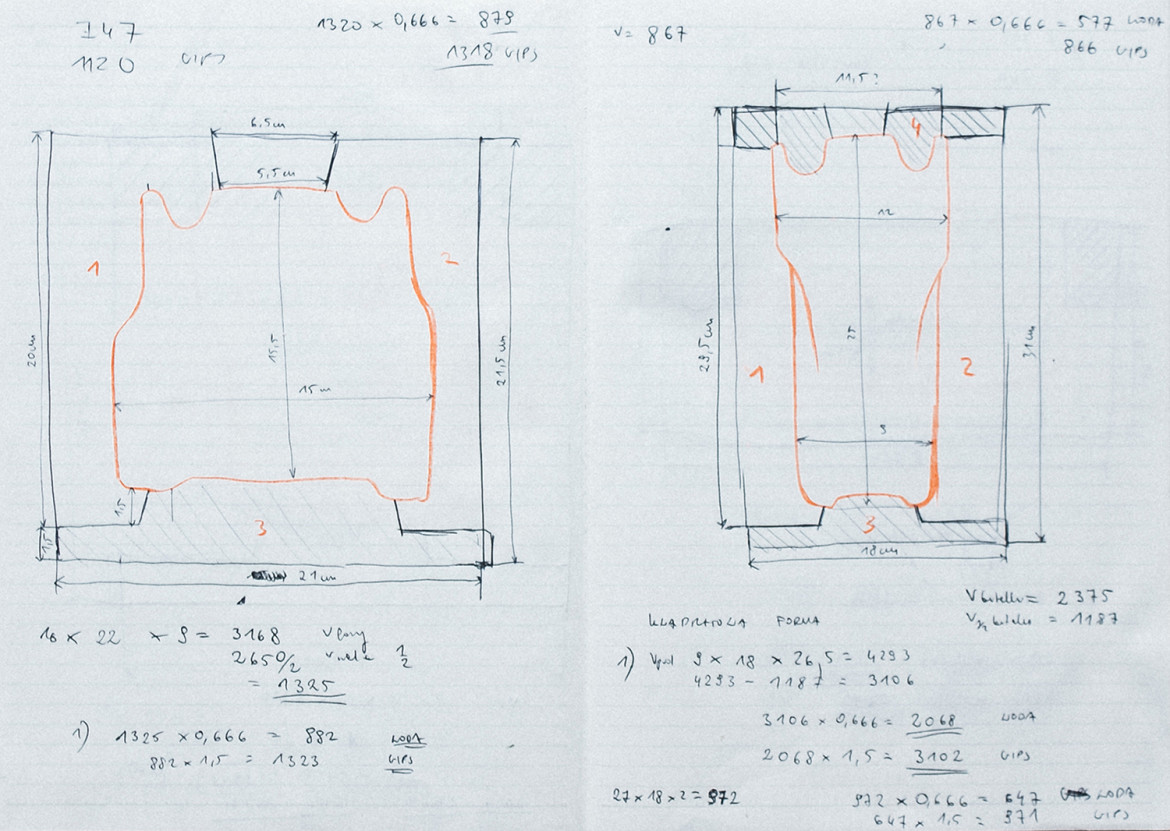 147
1120 GIPS
1320 × 0,666 = 879
1318 GIPS
6,5 cm
5,5 cm
1
2
20 cm
15,5
21,5 cm
15 cm
1,5
1,5
3
21 cm
16 × 22 × 9 = 3168
2650/2 1/2
= 1325
1) 1325 × 0,666 = 882 WODA
882 × 1,5 = 1323 GIPS
V = 867
867 × 0,666 = 577 WODA
866 GIPS
11,5?
4
12
29,5 cm
25
31 cm
1
2
9
3
18 cm
V butelki = 2375
V ½ butelki = 1187
KWADRATOWA FORMA
1) Vpoł 9 × 18 × 26,5 = 4293
4293 - 1187 = 3106
3106 × 0,666 = 2068 WODA
2068 × 1,5 = 3102 GIPS
27 × 18 × 2 = 972
972 × 0,666 = 647 WODA
647 × 1,5 = 971 GIPS